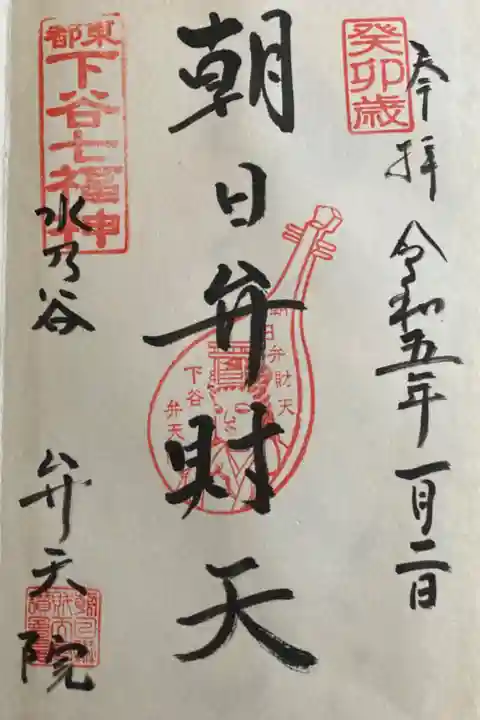 癸卯歳
奉拝 令和五年一月二日
朝日弁財天
朝日弁財天
下谷
弁天
東都
下谷七福神
水乃谷 弁天院